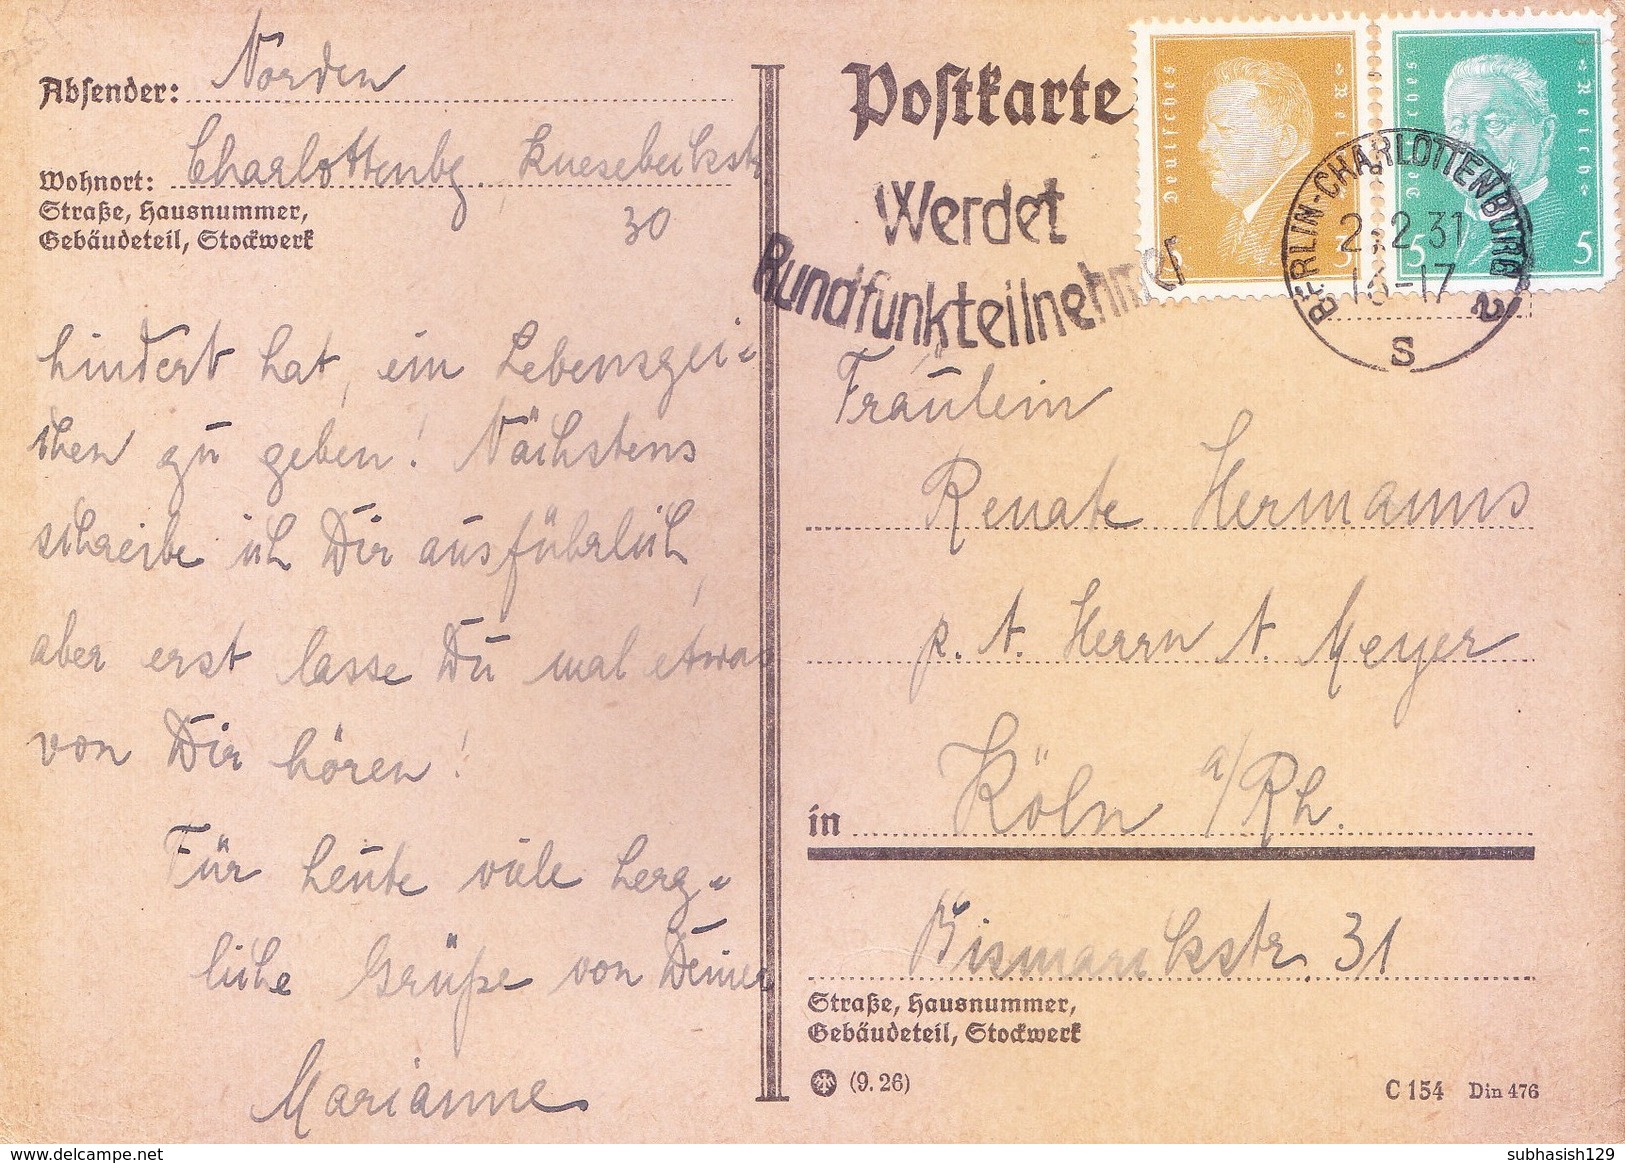 Absender: Norden
Wohnort: Charlottenbg. Knesebeckstr
Straße, Hausnummer,
Gebäudeteil, Stockwerk
30
hindert hat, ein Lebenszei-
chen zu geben! Nächstens
schreibe ich Dir ausführlich,
aber erst lasse Du mal etwas
von Dir hören!
Für heute viele herz-
liche Grüße von Deiner
Marianne
Postkarte
Deutsches Reich
3
Deutsches Reich
5 5
Werdet
Rundfunkteilnehmer
BERLIN-CHARLOTTENBURG 2
2.2.31
16-17
S
Fräulein
Renate Hermanns
p. A. Herrn A. Meyer
in Köln a/Rh.
Bismarckstr. 31
Straße, Hausnummer,
Gebäudeteil, Stockwerk
(9. 26)
C 154 Din 476
www.delcampe.net
subhasish129